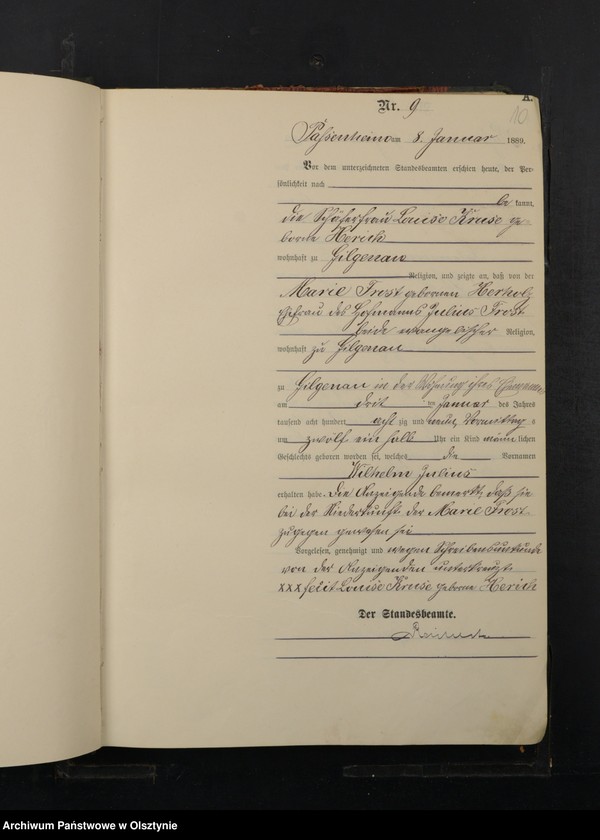 A.
Nr. 9
10
Passenheim am 8. Januar 1889.
Vor dem unterzeichneten Standesbeamten erschien heute, der Per-
sönlichkeit nach
be kannt,
die Schäferfrau Louise Kruse ge-
borne Herich
wohnhaft zu Gilgenau
Religion, und zeigte an, daß von der
Marie Frost gebornen Herholz
Ehefrau des Hofmanns Julius Frost
beide evangelischer Religion,
wohnhaft zu Gilgenau
zu Gilgenau in der Wohnung ihres Ehemannes
am drit ten Januar des Jahres
tausend acht hundert acht zig und neun Vormittag s
um zwölf ein halb Uhr ein Kind männ lichen
Geschlechts geboren worden sei, welches die Vornamen
Wilhelm Julius
erhalten habe. Die Anzeigende bemerkt, daß sie
bei der Niederkunft der Marie Frost
zugegen gewesen sei
Vorgelesen, genehmigt und wegen Schreibensunkunde
von der Anzeigenden unterkreuzt
XXX Louise Kruse geborne Herich
Der Standesbeamte.
Archiwum Państwowe w Olsztynie